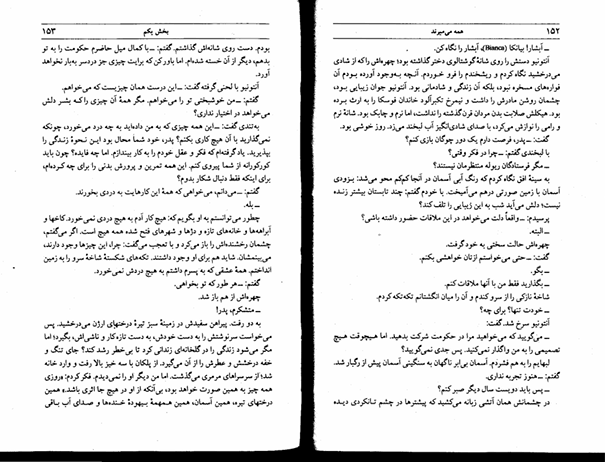 ۱۵۲ همه می‌میرند
ـ آبشار! بیانکا (Bianca)، آبشار را نگاه کن.
آنتونیو دستش را روی شانهٔ گوشتالوی دختر گذاشته بود؛ چهره‌اش که از شادی
می‌درخشید نگاه کردم و ریشخندم را فرو خوردم. آنچه به‌وجود آورده بودم آن
فواره‌های مسخره نبود، بلکه آن زندگی و شادمانی بود. آنتونیو جوان زیبایی بود،
چشمان روشن مادرش را داشت و نیمرخ تکبرآلود خاندان فوسکا را به ارث برده
بود. هیکلش صلابت بدن مردان قرن گذشته را نداشت، اما نرم و چابک بود. شانهٔ نرم
و رامی را نوازش می‌کرد، با صدای شادی‌انگیز آب لبخند می‌زد. روز خوشی بود.
گفت: ـ پدر، فرصت دارم یک دور چوگان بازی کنم؟
با لبخندی گفتم: ـ چرا در فکر وقتی؟
ـ مگر فرستادگان ریوله منتظرمان نیستند؟
به سینهٔ افق نگاه کردم که رنگ آبی آسمان در آنجا کم‌کم محو می‌شد: بزودی
آسمان با زمین صورتی درهم می‌آمیخت. با خودم گفتم: چند تابستان بیشتر زنده
نیست؛ دلش می‌آید شب به این زیبایی را تلف کند؟
پرسیدم: ـ واقعاً دلت می‌خواهد در این ملاقات حضور داشته باشی؟
ـ البته.
چهره‌اش حالت سختی به خود گرفت.
گفت: ـ حتی می‌خواستم ازتان خواهشی بکنم.
ـ بگو.
ـ بگذارید فقط من با آنها ملاقات کنم.
شاخهٔ نازکی را از سرو کندم و آن را میان انگشتانم تکه‌تکه کردم.
ـ خودت تنها؟ برای چه؟
آنتونیو سرخ شد. گفت:
ـ می‌گویید که می‌خواهید مرا در حکومت شرکت بدهید. اما هیچوقت هیچ
تصمیمی را به من واگذار نمی‌کنید. پس جدی نمی‌گویید؟
لبهایم را به هم فشردم. آسمان بی‌ابر ناگهان به سنگینی آسمان پیش از رگبار شد.
گفتم: ـ هنوز تجربه نداری.
ـ پس باید دویست سال دیگر صبر کنم؟
در چشمانش همان آتشی زبانه می‌کشید که پیشترها در چشم تانکردی دیده
بخش یکم ۱۵۳
بودم. دست روی شانه‌اش گذاشتم. گفتم: ـ با کمال میل حاضرم حکومت را به تو
بدهم، دیگر از آن خسته شده‌ام. اما باور کن که برایت چیزی جز دردسر به‌بار نخواهد
آورد.
آنتونیو با لحنی گرفته گفت: ـ این درست همان چیزیست که می‌خواهم.
گفتم: ـ من خوشبختی تو را می‌خواهم. مگر همهٔ آن چیزی را که بشر دلش
می‌خواهد در اختیار نداری؟
به‌تندی گفت: ـ این همه چیزی که به من داده‌اید به چه درد می‌خورد، چونکه
نمی‌گذارید با آن هیچ کاری بکنم؟ پدر، خود شما محال بود این نحوهٔ زندگی را
بپذیرید. یاد گرفته‌ام که فکر و عقل خودم را به کار بیندازم. اما چه فایده؟ چون باید
کورکورانه از شما پیروی کنم. این همه تمرین و پرورش بدنی را برای چه کرده‌ام،
برای اینکه فقط دنبال شکار بدوم؟
گفتم: ـ می‌دانم، می‌خواهی که همهٔ این کارهایت به دردی بخورند.
ـ بله.
چطور می‌توانستم به او بگویم که: هیچ کار آدم به هیچ دردی نمی‌خورد. کاخها و
آبراهه‌ها و خانه‌های تازه و دژها و شهرهای فتح شده همه هیچ است. اگر می‌گفتم،
چشمان رخشنده‌اش را باز می‌کرد و با تعجب می‌گفت: چرا، این چیزها وجود دارند،
می‌بینمشان. شاید هم برای او وجود داشتند. تکه‌های شکستهٔ شاخهٔ سرو را به زمین
انداختم. همهٔ عشقی که به پسرم داشتم به هیچ دردش نمی‌خورد.
گفتم: ـ هر طور که تو بخواهی.
چهره‌اش از هم باز شد.
ـ متشکرم، پدر!
به دو رفت. پیراهن سفیدش در زمینهٔ سبز تیرهٔ درختهای ارژن می‌درخشید. پس
می‌خواست سرنوشتش را به دست خودش، به دست تازه‌کار و ناشی‌اش، بگیرد؛ اما
مگر می‌شود زندگی را در گلخانه‌ای زندانی کرد تا بی‌خطر رشد کند؟ جای تنگ و
خفه درخشش و عطرش را از آن می‌گیرد. از پلکان با سه خیز بالا رفت و وارد خانه
شد؛ از سرسراهای مرمری می‌گذشت. اما من دیگر او را نمی‌دیدم. فکر کردم: «روزی
همه چیز به همین صورت خواهد بود، بی‌آنکه از او در هیچ جا اثری باشد.» همین
درختهای تیره، همین آسمان، همین همهمهٔ بیهودهٔ خنده‌ها و صدای آب باقی